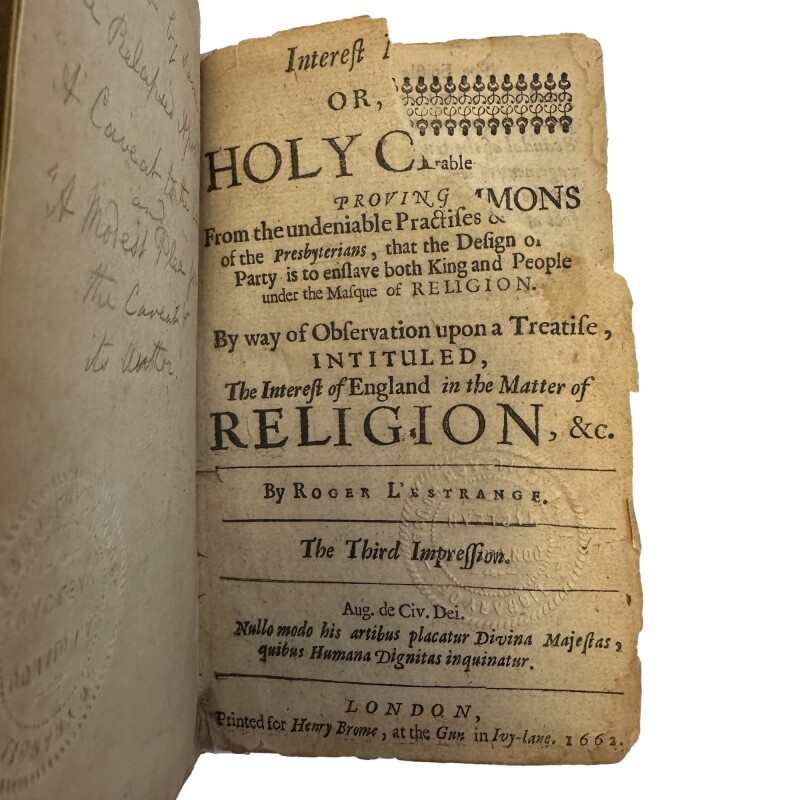 Relapsed
A Caveat to the
and
"A Modest Plea
the Caveat &
its Author.
Intereſt
OR,
HOLY
rable
PROVING
MMONS
From the undeniable Practiſes &
of the Presbyterians, that the Deſign
Party is to enſlave both King and People
under the Maſque of RELIGION.
By way of Obſervation upon a Treatiſe,
INTITULED,
The Intereſt of England in the Matter of
RELIGION, &c.
By ROGER L'ESTRANGE.
The Third Impreſſion.
Aug. de Civ. Dei.
Nullo modo his artibus placatur Divina Majeſtas,
quibus Humana Dignitas inquinatur.
LONDON,
Printed for Henry Brome, at the Gun in Ivy-lane. 1662.